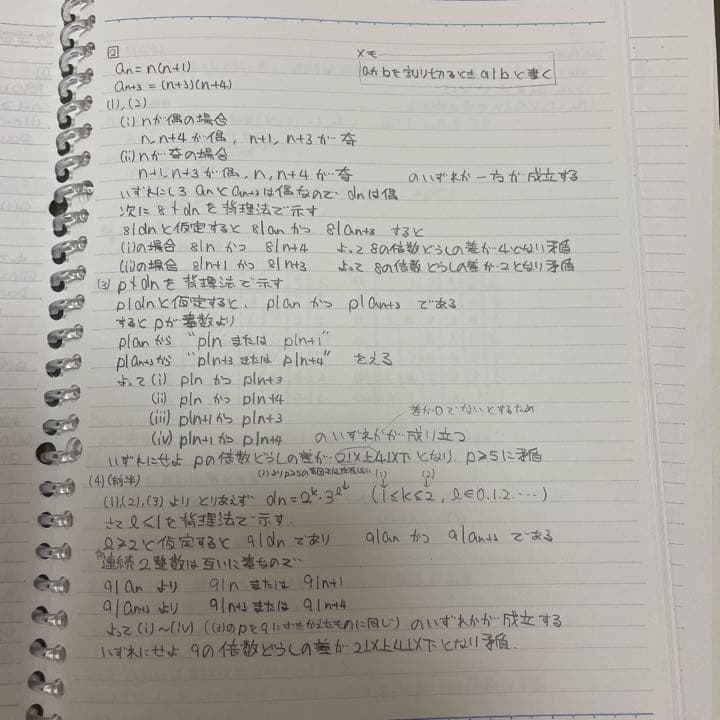 2
メモ
aがbを割り切るとき a|b と書く
an = n(n+1)
an+3 = (n+3)(n+4)
(1), (2)
(i) nが偶の場合
n, n+4 が偶, n+1, n+3 が奇
(ii) nが奇の場合
n+1, n+3 が偶, n, n+4 が奇 のいずれか一方が成立する
いずれにしろ an と an+3 は偶なので dnは偶
次に 8∤dn を背理法で示す
8|dn と仮定すると 8|an かつ 8|an+3 すると
(i)の場合 8|n かつ 8|n+4 よって 8の倍数どうしの差が4となり矛盾
(ii)の場合 8|n+1 かつ 8|n+3 よって 8の倍数どうしの差が2となり矛盾
(3) p∤dn を背理法で示す
p|dn と仮定すると、p|an かつ p|an+3 である
すると pが素数より
p|an から "p|n または p|n+1"
p|an+3 から "p|n+3 または p|n+4" をえる
よって (i) p|n かつ p|n+3
(ii) p|n かつ p|n+4
(iii) p|n+1 かつ p|n+3
差が0でないとするため
(iv) p|n+1 かつ p|n+4 のいずれかが成り立つ
いずれにせよ pの倍数どうしの差が2以上4以下となり、p≥5に矛盾
(4) (前半)
(1) (2)
(1), (2), (3) より とりあえず dn = 2^k・3^l (1≤k≤2, l∈0.1.2.…)
さて l≤1を背理法で示す.
l≥2と仮定すると 9|dn であり 9|an かつ 9|an+3 である
☆連続2整数は互いに素なので
9|an より 9|n または 9|n+1
9|an+3 より 9|n+3 または 9|n+4
よって (i)~(iv) ((3)のpを9にすりかえたものに同じ) のいずれかが成立する
いずれにせよ 9の倍数どうしの差が 2以上4以下となり矛盾.